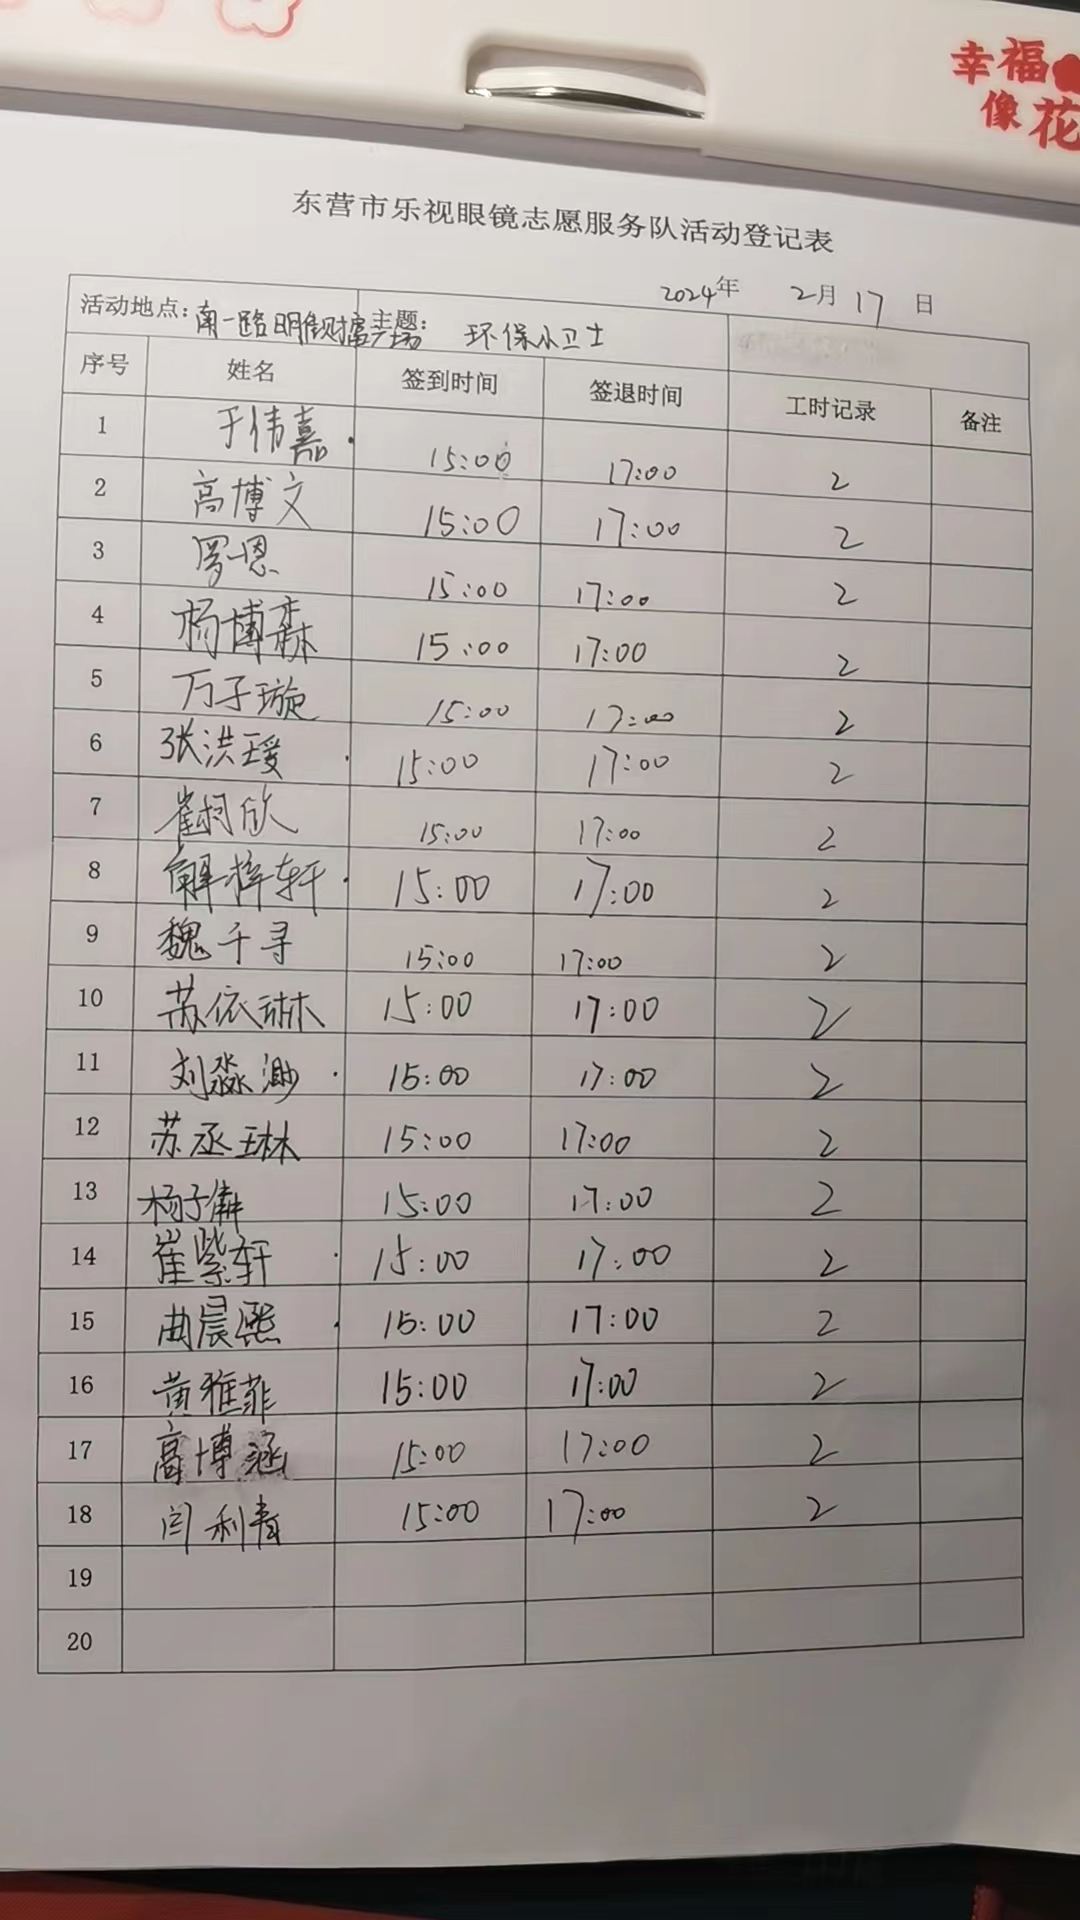 幸福
像花
东营市乐视眼镜志愿服务队活动登记表
2024年 2月 17 日
活动地点：南一路明侬财富广场 主题： 环保小卫士
序号 姓名 签到时间 签退时间 工时记录 备注
1 于伟嘉 15:00 17:00 2
2 高博文 15:00 17:00 2
3 罗一恩 15:00 17:00 2
4 杨博森 15:00 17:00 2
5 万子璇 15:00 17:00 2
6 张洪瑗 15:00 17:00 2
7 崔柯欣 15:00 17:00 2
8 解梓轩 15:00 17:00 2
9 魏千寻 15:00 17:00 2
10 苏依琳 15:00 17:00 2
11 刘淼渺 15:00 17:00 2
12 苏丞琳 15:00 17:00 2
13 杨子 15:00 17:00 2
14 崔紫轩 15:00 17:00 2
15 曲晨熙 15:00 17:00 2
16 黄雅菲 15:00 17:00 2
17 高博涵 15:00 17:00 2
18 闫利青 15:00 17:00 2
19
20